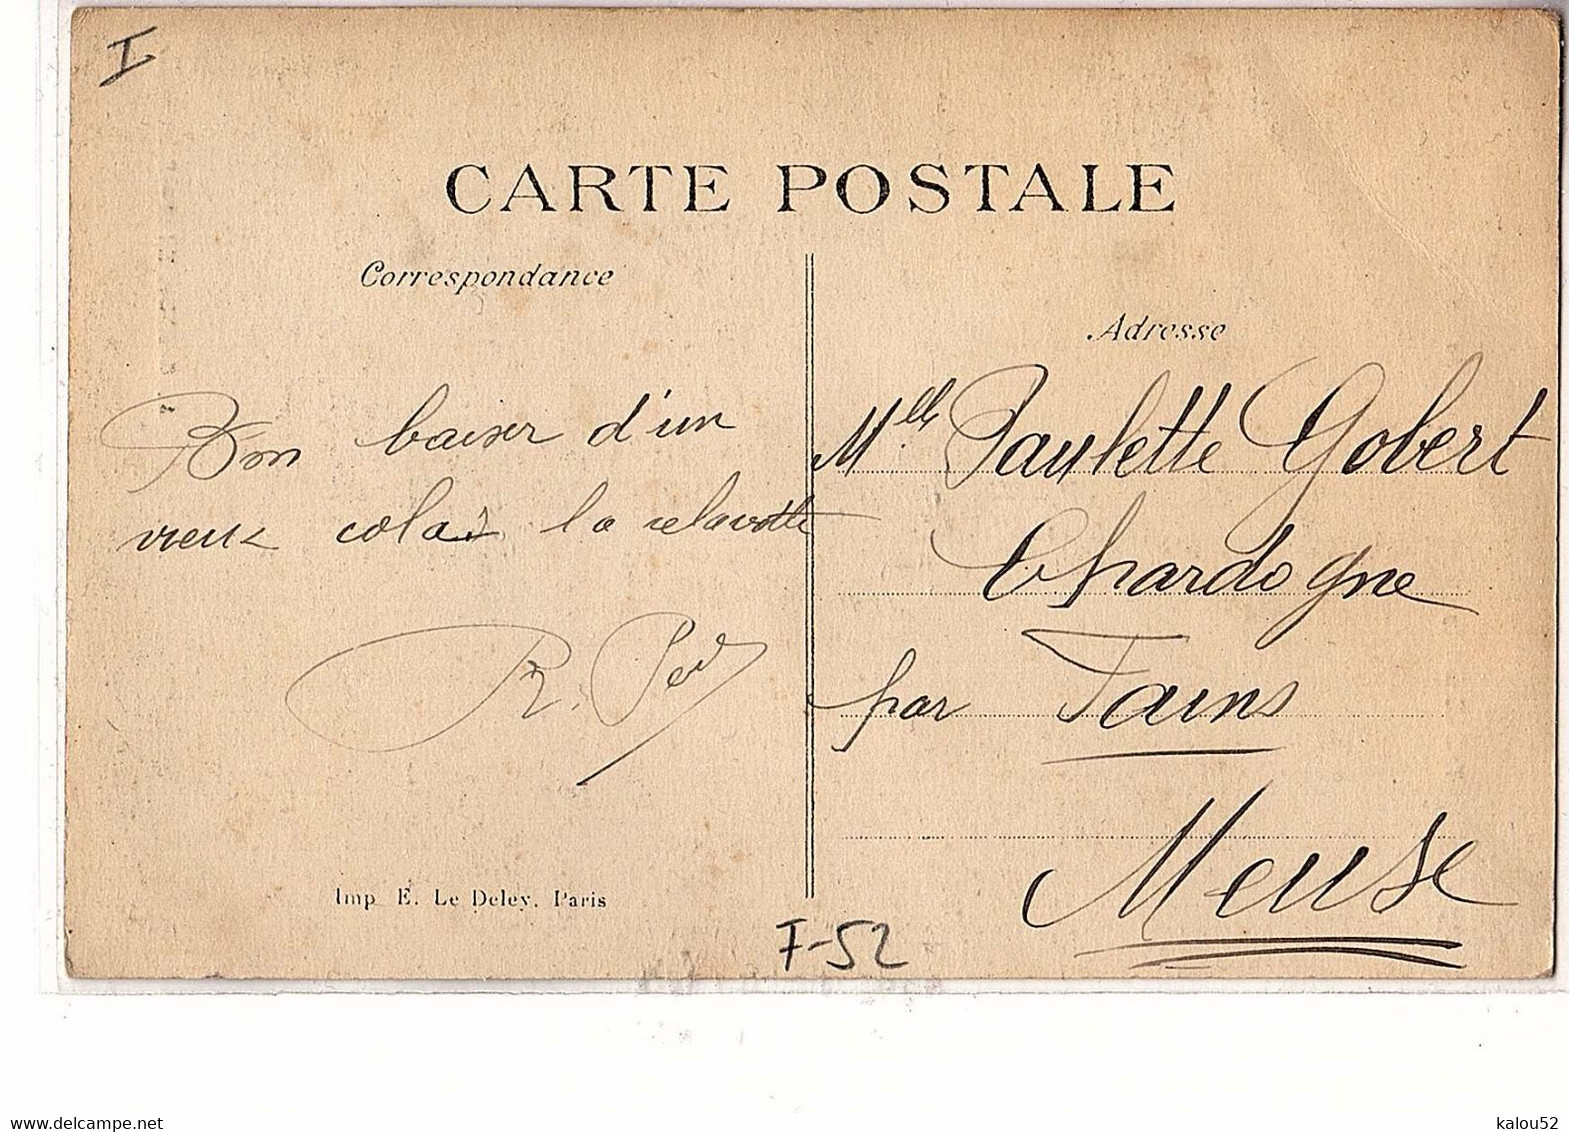 I
CARTE POSTALE
Correspondance
Bon baiser d'un
vieux colas la relavotte
R.
Imp E. Le Deley, Paris
Adresse
Melle Paulette Gobert
Chardogne
par Fains
Meuse
F-52
www.delcampe.net
kalou52